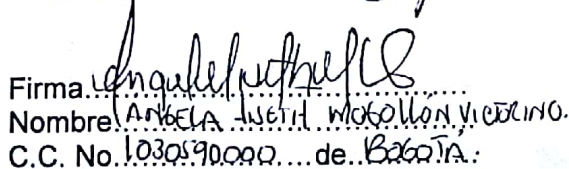 Firma
Nombre ANGELA IVETH MOGOLLÓN VICTORINO.
C.C. No. 1030590000 de BOGOTÁ.